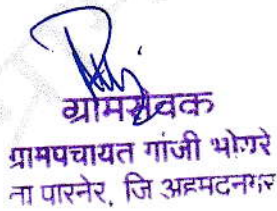 ग्रामसेवक
ग्रामपचायत गांजी भोयरे
ता पारनेर, जि अहमदनगर